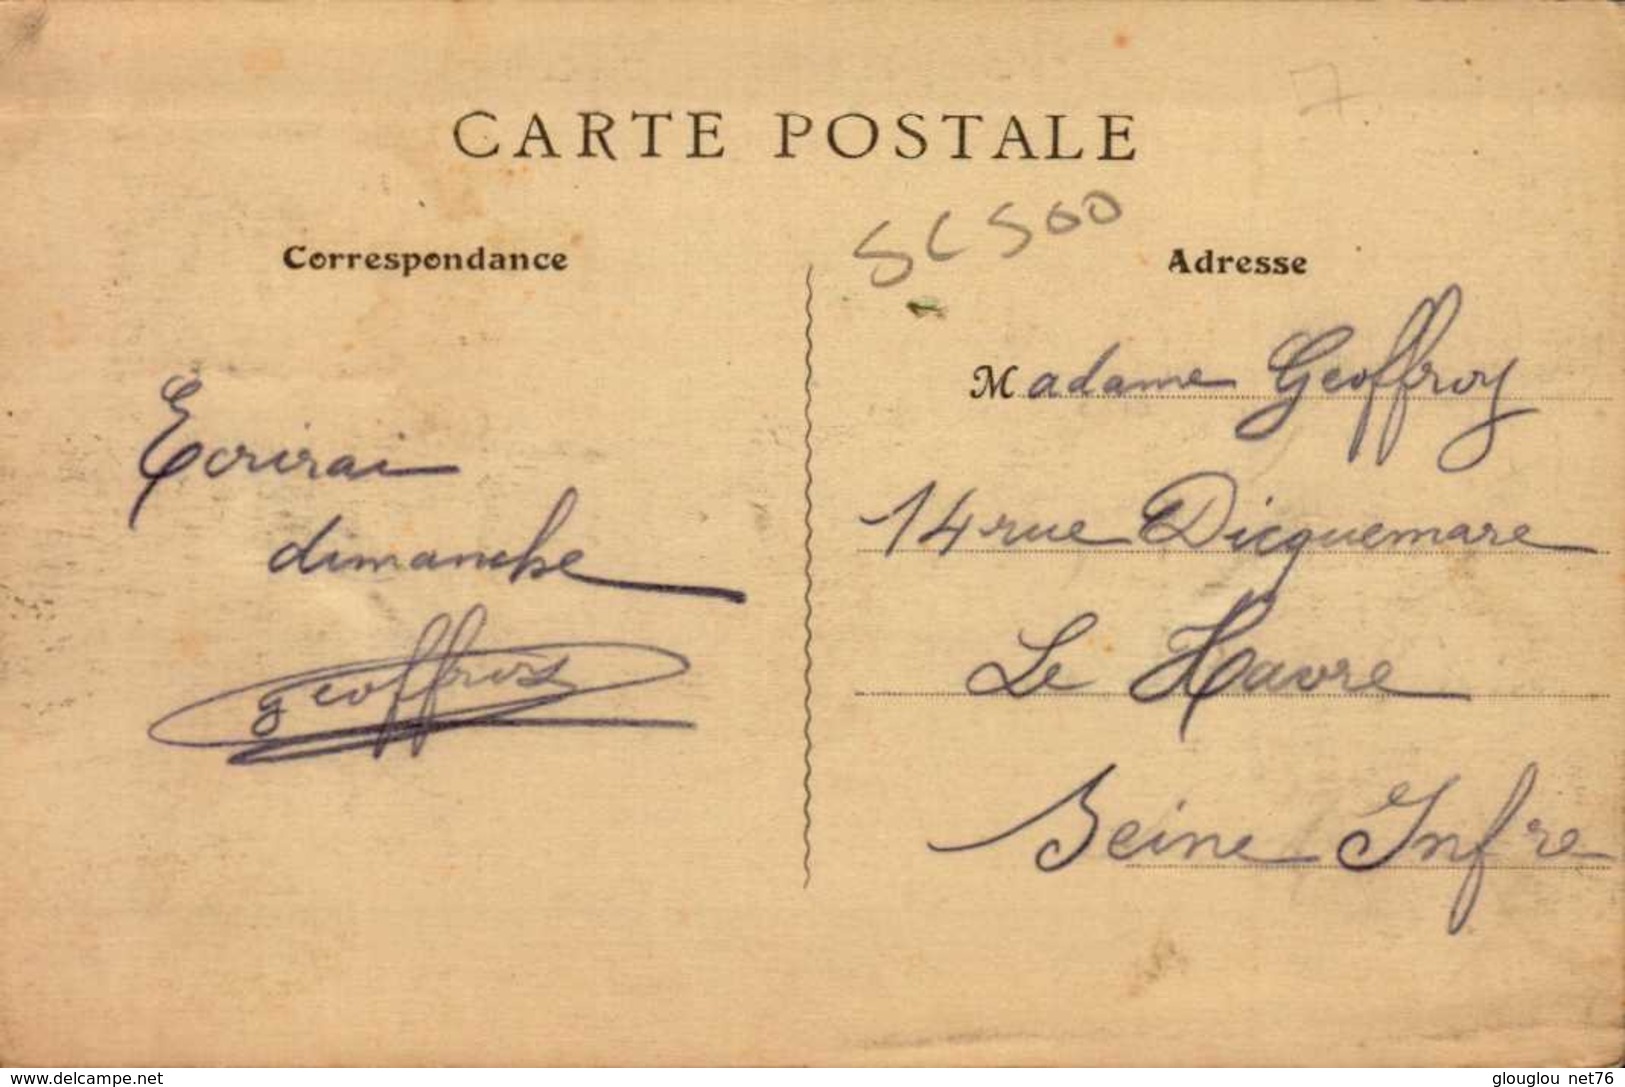 CARTE POSTALE
7
SC 500
Correspondance
Ecrirai
dimanche
geoffroy
Adresse
Madame Geoffroy
14 rue Dicquemare
Le Havre
Seine Infre
www.delcampe.net
glouglou net76